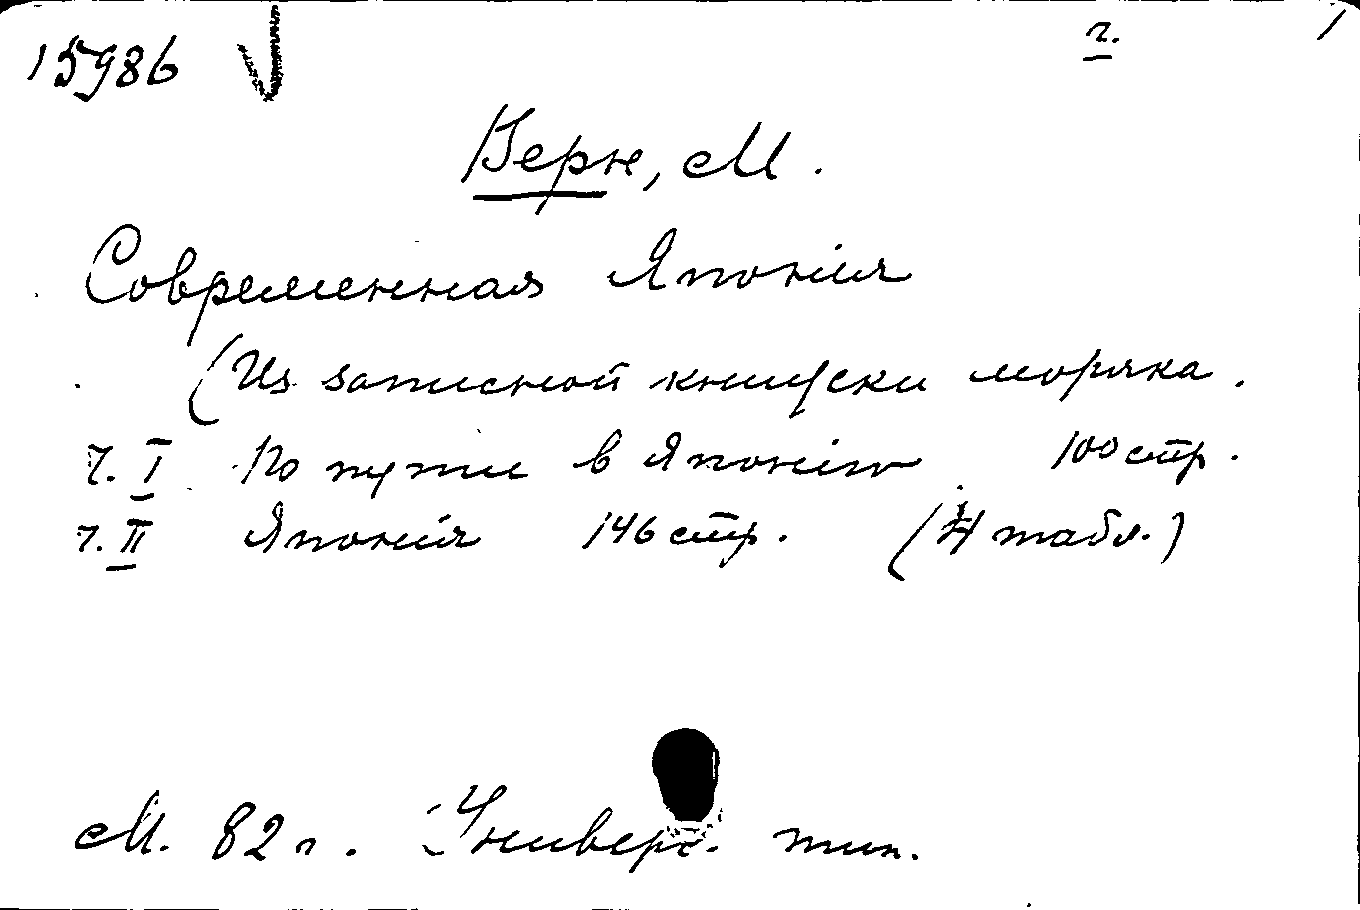 15986 г.
Верн, М.
Современная Японія
(Из записной книжки моряка.
Ч. I По пути в Японію 100 стр.
ч. II Японія 146 стр. (4 табл.)
М. 82 г. Универс. тип.